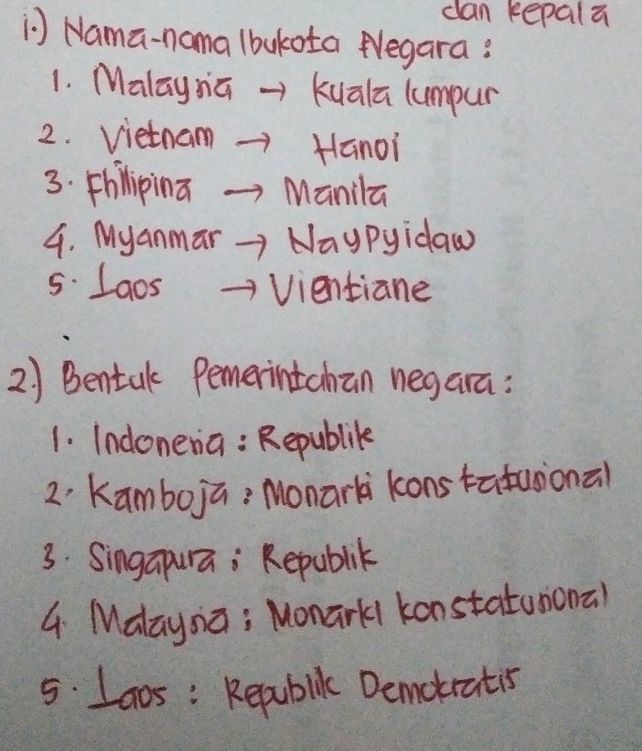 dan kepala
1.) Nama-nama Ibukota Negara :
1. Malaysia → Kuala lumpur
2. Vietnam → Hanoi
3. Fhilipina → Manila
4. Myanmar → Naypyidaw
5. Laos → Vientiane
2.) Bentuk Pemerintahan negara :
1. Indonesia : Republik
2. Kamboja : Monarki konstatusional
3. Singapura ; Republik
4. Malaysia ; Monarki konstatusional
5. Laos : Republik Demokratis